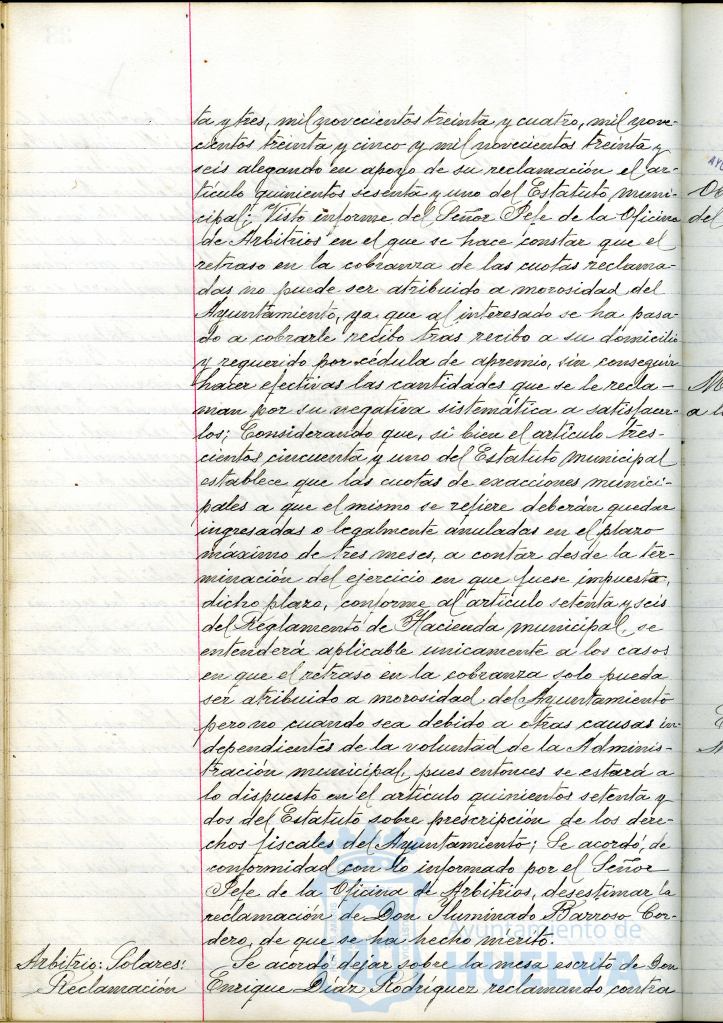 ta y tres, mil novecientos treinta y cuatro, mil nove-
cientos treinta y cinco y mil novecientos treinta y
seis alegando en apoyo de su reclamación el ar-
tículo quinientos sesenta y uno del Estatuto muni-
cipal; Visto informe del Señor Jefe de la Oficina
de Arbitrios en el que se hace constar que el
retraso en la cobranza de las cuotas reclama-
das no puede ser atribuido a morosidad del
Ayuntamiento, ya que al interesado se ha pasa-
do a cobrarle recibo tras recibo a su domicilio
y requerido por cédula de apremio, sin conseguir
hacer efectivas las cantidades que se le recla-
man por su negativa sistemática a satisfacer-
los; Considerando que, si bien el artículo tres-
cientos cincuenta y uno del Estatuto municipal
establece que las cuotas de exacciones munici-
pales a que el mismo se refiere deberán quedar
ingresadas o legalmente anuladas en el plazo
máximo de tres meses, a contar desde la ter-
minación del ejercicio en que fuese impuesta,
dicho plazo, conforme al artículo setenta y seis
del Reglamento de Hacienda municipal, se
entenderá aplicable unicamente a los casos
en que el retraso en la cobranza solo pueda
ser atribuido a morosidad del Ayuntamiento
pero no cuando sea debido a otras causas in-
dependientes de la voluntad de la Adminis-
tración municipal, pues entonces se estará a
lo dispuesto en el artículo quinientos setenta y
dos del Estatuto sobre prescripción de los dere-
chos fiscales del Ayuntamiento; Se acordó, de
conformidad con lo informado por el Señor
Jefe de la Oficina de Arbitrios, desestimar la
reclamación de Don Iluminado Barroso Cor-
dero, de que se ha hecho merito.
Arbitrio: Solares:
Reclamación
Se acordó dejar sobre la mesa escrito de Don
Enrique Díaz Rodríguez reclamando contra
Ayuntamiento de
HUELVA